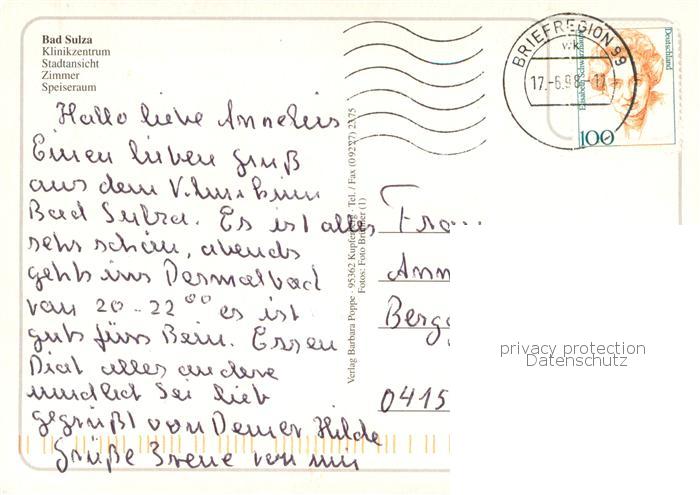 Bad Sulza
Klinikzentrum
Stadtansicht
Zimmer
Speiseraum
Hallo liebe Annelies
Einen lieben Gruß
aus dem
Bad Sulza. Es ist alles
sehr schön, abends
gehts ins Dermalbad
von 20-22⁰⁰ es ist
guts fürs Bein. Essen
Diät alles andere
mündlich Sei lieb
gegrüßt von Deiner Hilde
Grüße Irene von mir
Verlag Barbara Poppe · 95362 Kupferberg · Tel. / Fax (0 92 27) 23 75
Fotos: Foto Brückner (1)
BRIEFREGION 99
vk
17.-6.98-17
Deutschland
Elisabeth Schwarzhaupt
100
Fra
Ann
Berg
0415
privacy protection
Datenschutz